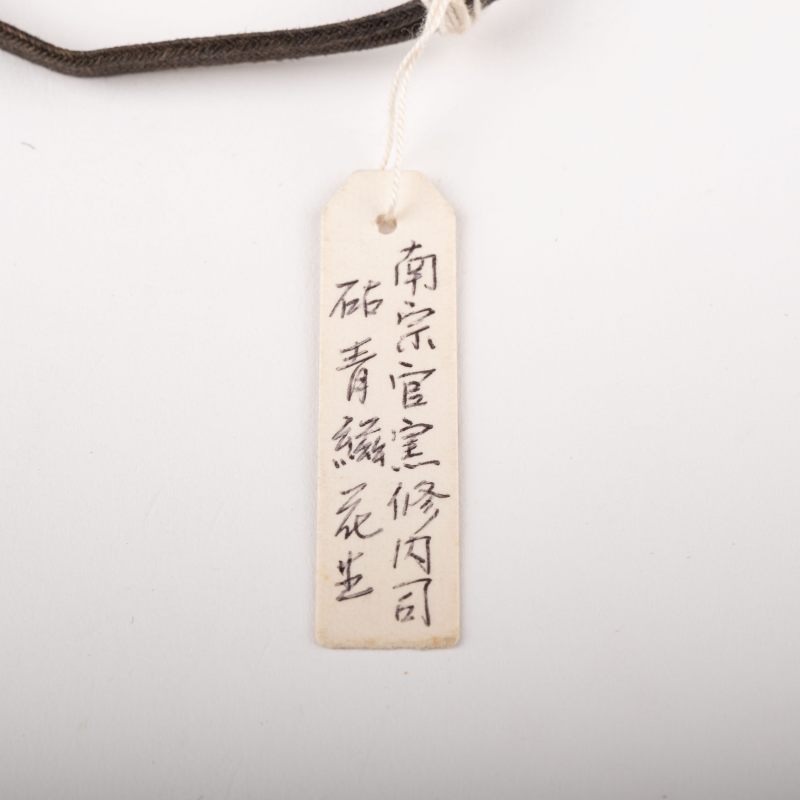 南宗官窯修内司
砧青磁花生